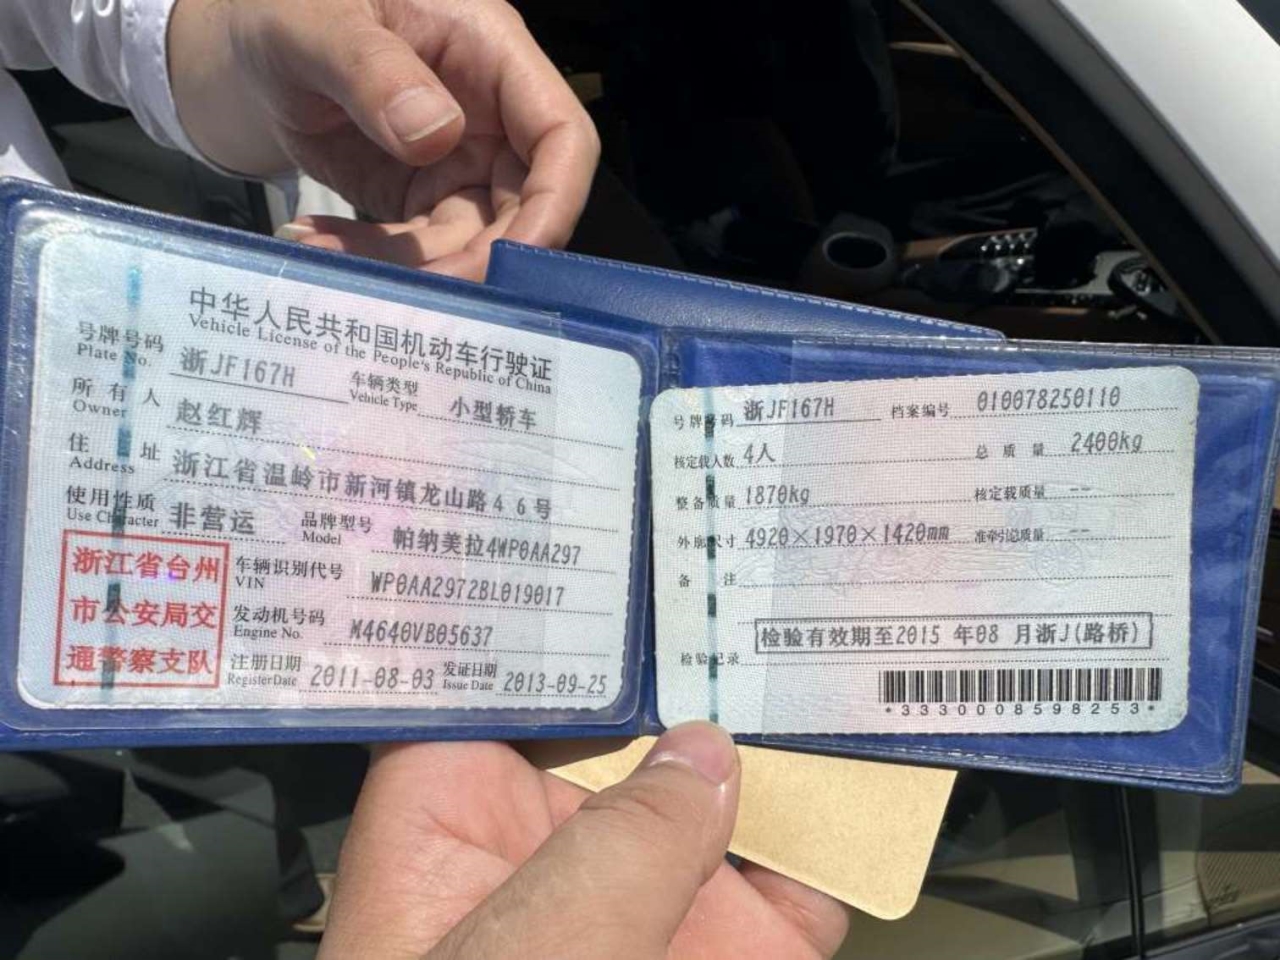 中华人民共和国机动车行驶证
Vehicle License of the People's Republic of China
号牌号码 浙JF167H 车辆类型 小型轿车
Plate No. Vehicle Type
所有人 赵红辉
Owner
住址 浙江省温岭市新河镇龙山路46号
Address
使用性质 非营运 品牌型号 帕纳美拉4WP0AA297
Use Character Model
浙江省台州
市公安局交
通警察支队
车辆识别代号 WP0AA2972BL019017
VIN
发动机号码 M4640VB05637
Engine No.
注册日期 2011-08-03 发证日期 2013-09-25
Register Date Issue Date
号牌号码 浙JF167H 档案编号 010078250110
核定载人数 4人 总质量 2400kg
整备质量 1870kg 核定载质量 --
外廓尺寸 4920×1970×1420mm 准牵引总质量 --
备注
检验有效期至2015 年08 月浙J(路桥)
检验记录
*3330008598253*